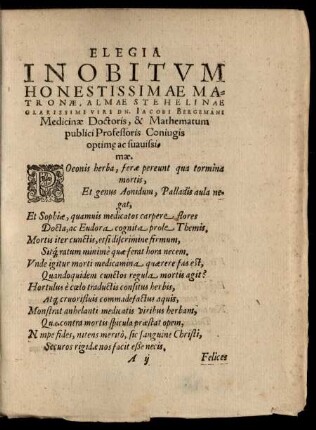 ELEGIA
IN OBITVM
HONESTISSIMAE MA-
TRONÆ, ALMAE STEHELINAE
CLARISSIMI VIRI DN. IACOBI BERGEMANI
Medicinæ Doctoris, & Mathematum
publici Professoris Coniugis
optimę ac suauissi
mæ.
POeonis herba, feræ pereunt qua tormina
mortis,
Et genus Aonidum, Palladis aula ne-
gat,
Et Sophiæ, quamuis medicatos carpere flores
Docta, ac Eudora cognita prole Themis,
Mortis iter cunctis, etsi discrimine firmum,
Sitq́; ratum minimè quæ ferat hora necem,
Vnde igitur morti medicamina quærere fas est,
Quandoquidem cunctos regula mortis agit?
Hortulus è cœlo traductis consitus herbis,
Atq́; cruorifluis commadefactus aquis,
Monstrat anhelanti medicatis viribus herbam,
Quæ contra mortis spicula præstat opem,
Nempe fides, nitens meritò, sic sanguine Christi,
Securos rigidæ nos facit esse necis.
A ij
Felices